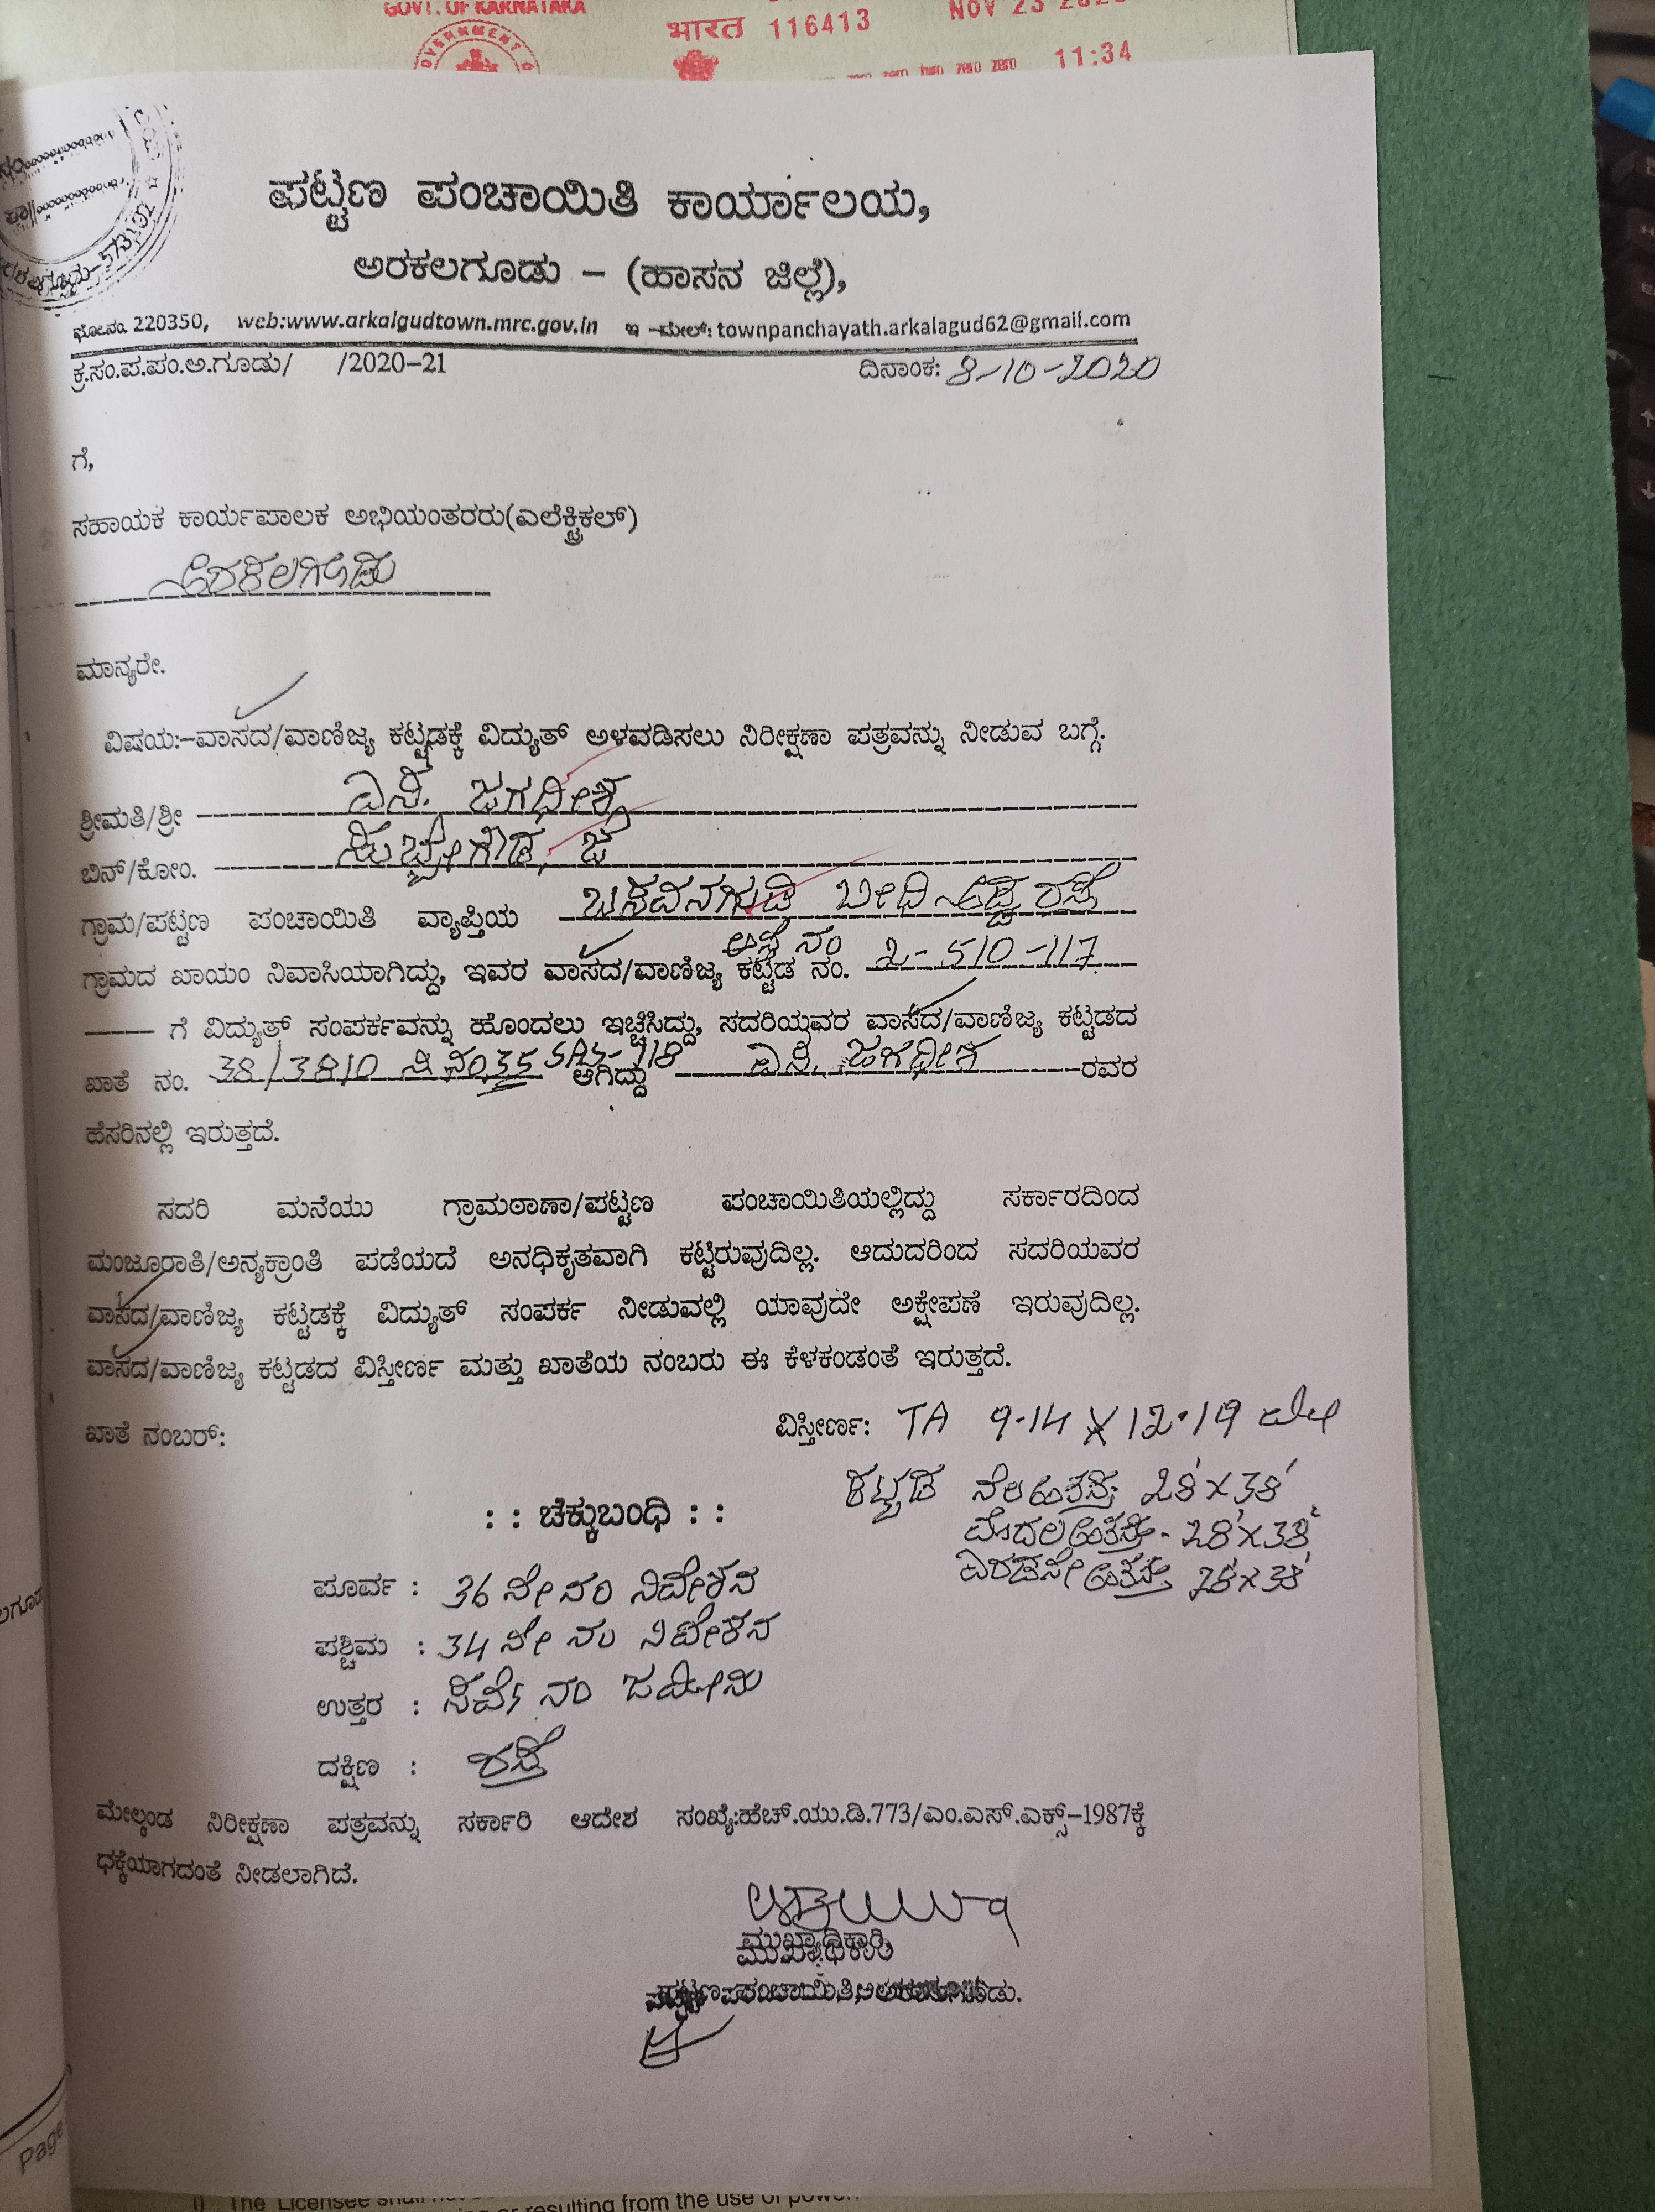 GOVT. OF KARNATAKA
भारत 116413 NOV 23
zero two zero zero 11:34
ಪಟ್ಟಣ ಪಂಚಾಯಿತಿ ಕಾರ್ಯಾಲಯ,
ಅರಕಲಗೂಡು – (ಹಾಸನ ಜಿಲ್ಲೆ),
ಫೋ.ನಂ. 220350, web:www.arkalgudtown.mrc.gov.in ಇ –ಮೇಲ್: townpanchayath.arkalagud62@gmail.com
ಕ್ರ.ಸಂ.ಪ.ಪಂ.ಅ.ಗೂಡು/ /2020–21 ದಿನಾಂಕ: 8-10-2020
ಗೆ,
ಸಹಾಯಕ ಕಾರ್ಯಪಾಲಕ ಅಭಿಯಂತರರು(ಎಲೆಕ್ಟ್ರಿಕಲ್)
ಅರಕಲಗೂಡು
ಮಾನ್ಯರೇ.
ವಿಷಯ:–ವಾಸದ/ವಾಣಿಜ್ಯ ಕಟ್ಟಡಕ್ಕೆ ವಿದ್ಯುತ್ ಅಳವಡಿಸಲು ನಿರೀಕ್ಷಣಾ ಪತ್ರವನ್ನು ನೀಡುವ ಬಗ್ಗೆ.
ಶ್ರೀಮತಿ/ಶ್ರೀ ಎಸ್. ಜಗಧೀಶ
ಬಿನ್/ಕೋಂ. ಜ
ಗ್ರಾಮ/ಪಟ್ಟಣ ಪಂಚಾಯಿತಿ ವ್ಯಾಪ್ತಿಯ ಬಸವನಗುಡಿ ಬೀದಿ ರಸ್ತೆ
ಆಸ್ತಿ ನಂ
ಗ್ರಾಮದ ಖಾಯಂ ನಿವಾಸಿಯಾಗಿದ್ದು, ಇವರ ವಾಸದ/ವಾಣಿಜ್ಯ ಕಟ್ಟಡ ನಂ. 2-510-117
ಗೆ ವಿದ್ಯುತ್ ಸಂಪರ್ಕವನ್ನು ಹೊಂದಲು ಇಚ್ಚಿಸಿದ್ದು, ಸದರಿಯವರ ವಾಸದ/ವಾಣಿಜ್ಯ ಕಟ್ಟಡದ
ಖಾತೆ ನಂ. 38/3810 ಸಿ ನಂ35 SAS-118 ಆಗಿದ್ದು ಎಸ್. ಜಗಧೀಶ ರವರ
ಹೆಸರಿನಲ್ಲಿ ಇರುತ್ತದೆ.
ಸದರಿ ಮನೆಯು ಗ್ರಾಮಠಾಣಾ/ಪಟ್ಟಣ ಪಂಚಾಯಿತಿಯಲ್ಲಿದ್ದು ಸರ್ಕಾರದಿಂದ
ಮಂಜೂರಾತಿ/ಅನ್ಯಕ್ರಾಂತಿ ಪಡೆಯದೆ ಅನಧಿಕೃತವಾಗಿ ಕಟ್ಟಿರುವುದಿಲ್ಲ. ಆದುದರಿಂದ ಸದರಿಯವರ
ವಾಸದ/ವಾಣಿಜ್ಯ ಕಟ್ಟಡಕ್ಕೆ ವಿದ್ಯುತ್ ಸಂಪರ್ಕ ನೀಡುವಲ್ಲಿ ಯಾವುದೇ ಅಕ್ಷೇಪಣೆ ಇರುವುದಿಲ್ಲ.
ವಾಸದ/ವಾಣಿಜ್ಯ ಕಟ್ಟಡದ ವಿಸ್ತೀರ್ಣ ಮತ್ತು ಖಾತೆಯ ನಂಬರು ಈ ಕೆಳಕಂಡಂತೆ ಇರುತ್ತದೆ.
ಖಾತೆ ನಂಬರ್: ವಿಸ್ತೀರ್ಣ: TA 9.14 X 12.19 ಮೀ
ಕಟ್ಟಡ ನೆಲಅಂತಸ್ತು 28'x38'
: : ಚೆಕ್ಕುಬಂಧಿ : :
ಮೊದಲಅಂತಸ್ತು - 28'x38'
ಎರಡನೇ ಅಂತಸ್ತು 28'x38'
ಪೂರ್ವ : 36 ನೇ ನಂ ನಿವೇಶನ
ಪಶ್ಚಿಮ : 34 ನೇ ನಂ ನಿವೇಶನ
ಉತ್ತರ : ಸರ್ವೆ ನಂ ಜಮೀನು
ದಕ್ಷಿಣ : ರಸ್ತೆ
ಮೇಲ್ಕಂಡ ನಿರೀಕ್ಷಣಾ ಪತ್ರವನ್ನು ಸರ್ಕಾರಿ ಆದೇಶ ಸಂಖ್ಯೆ:ಹೆಚ್.ಯು.ಡಿ.773/ಎಂ.ಎಸ್.ಎಕ್ಸ್–1987ಕ್ಕೆ
ಧಕ್ಕೆಯಾಗದಂತೆ ನೀಡಲಾಗಿದೆ.
ಮುಖ್ಯಾಧಿಕಾರಿ
ಪಟ್ಟಣ ಪಂಚಾಯಿತಿ, ಅರಕಲಗೂಡು.
Page
The Licensee shall
or resulting from the use of power.